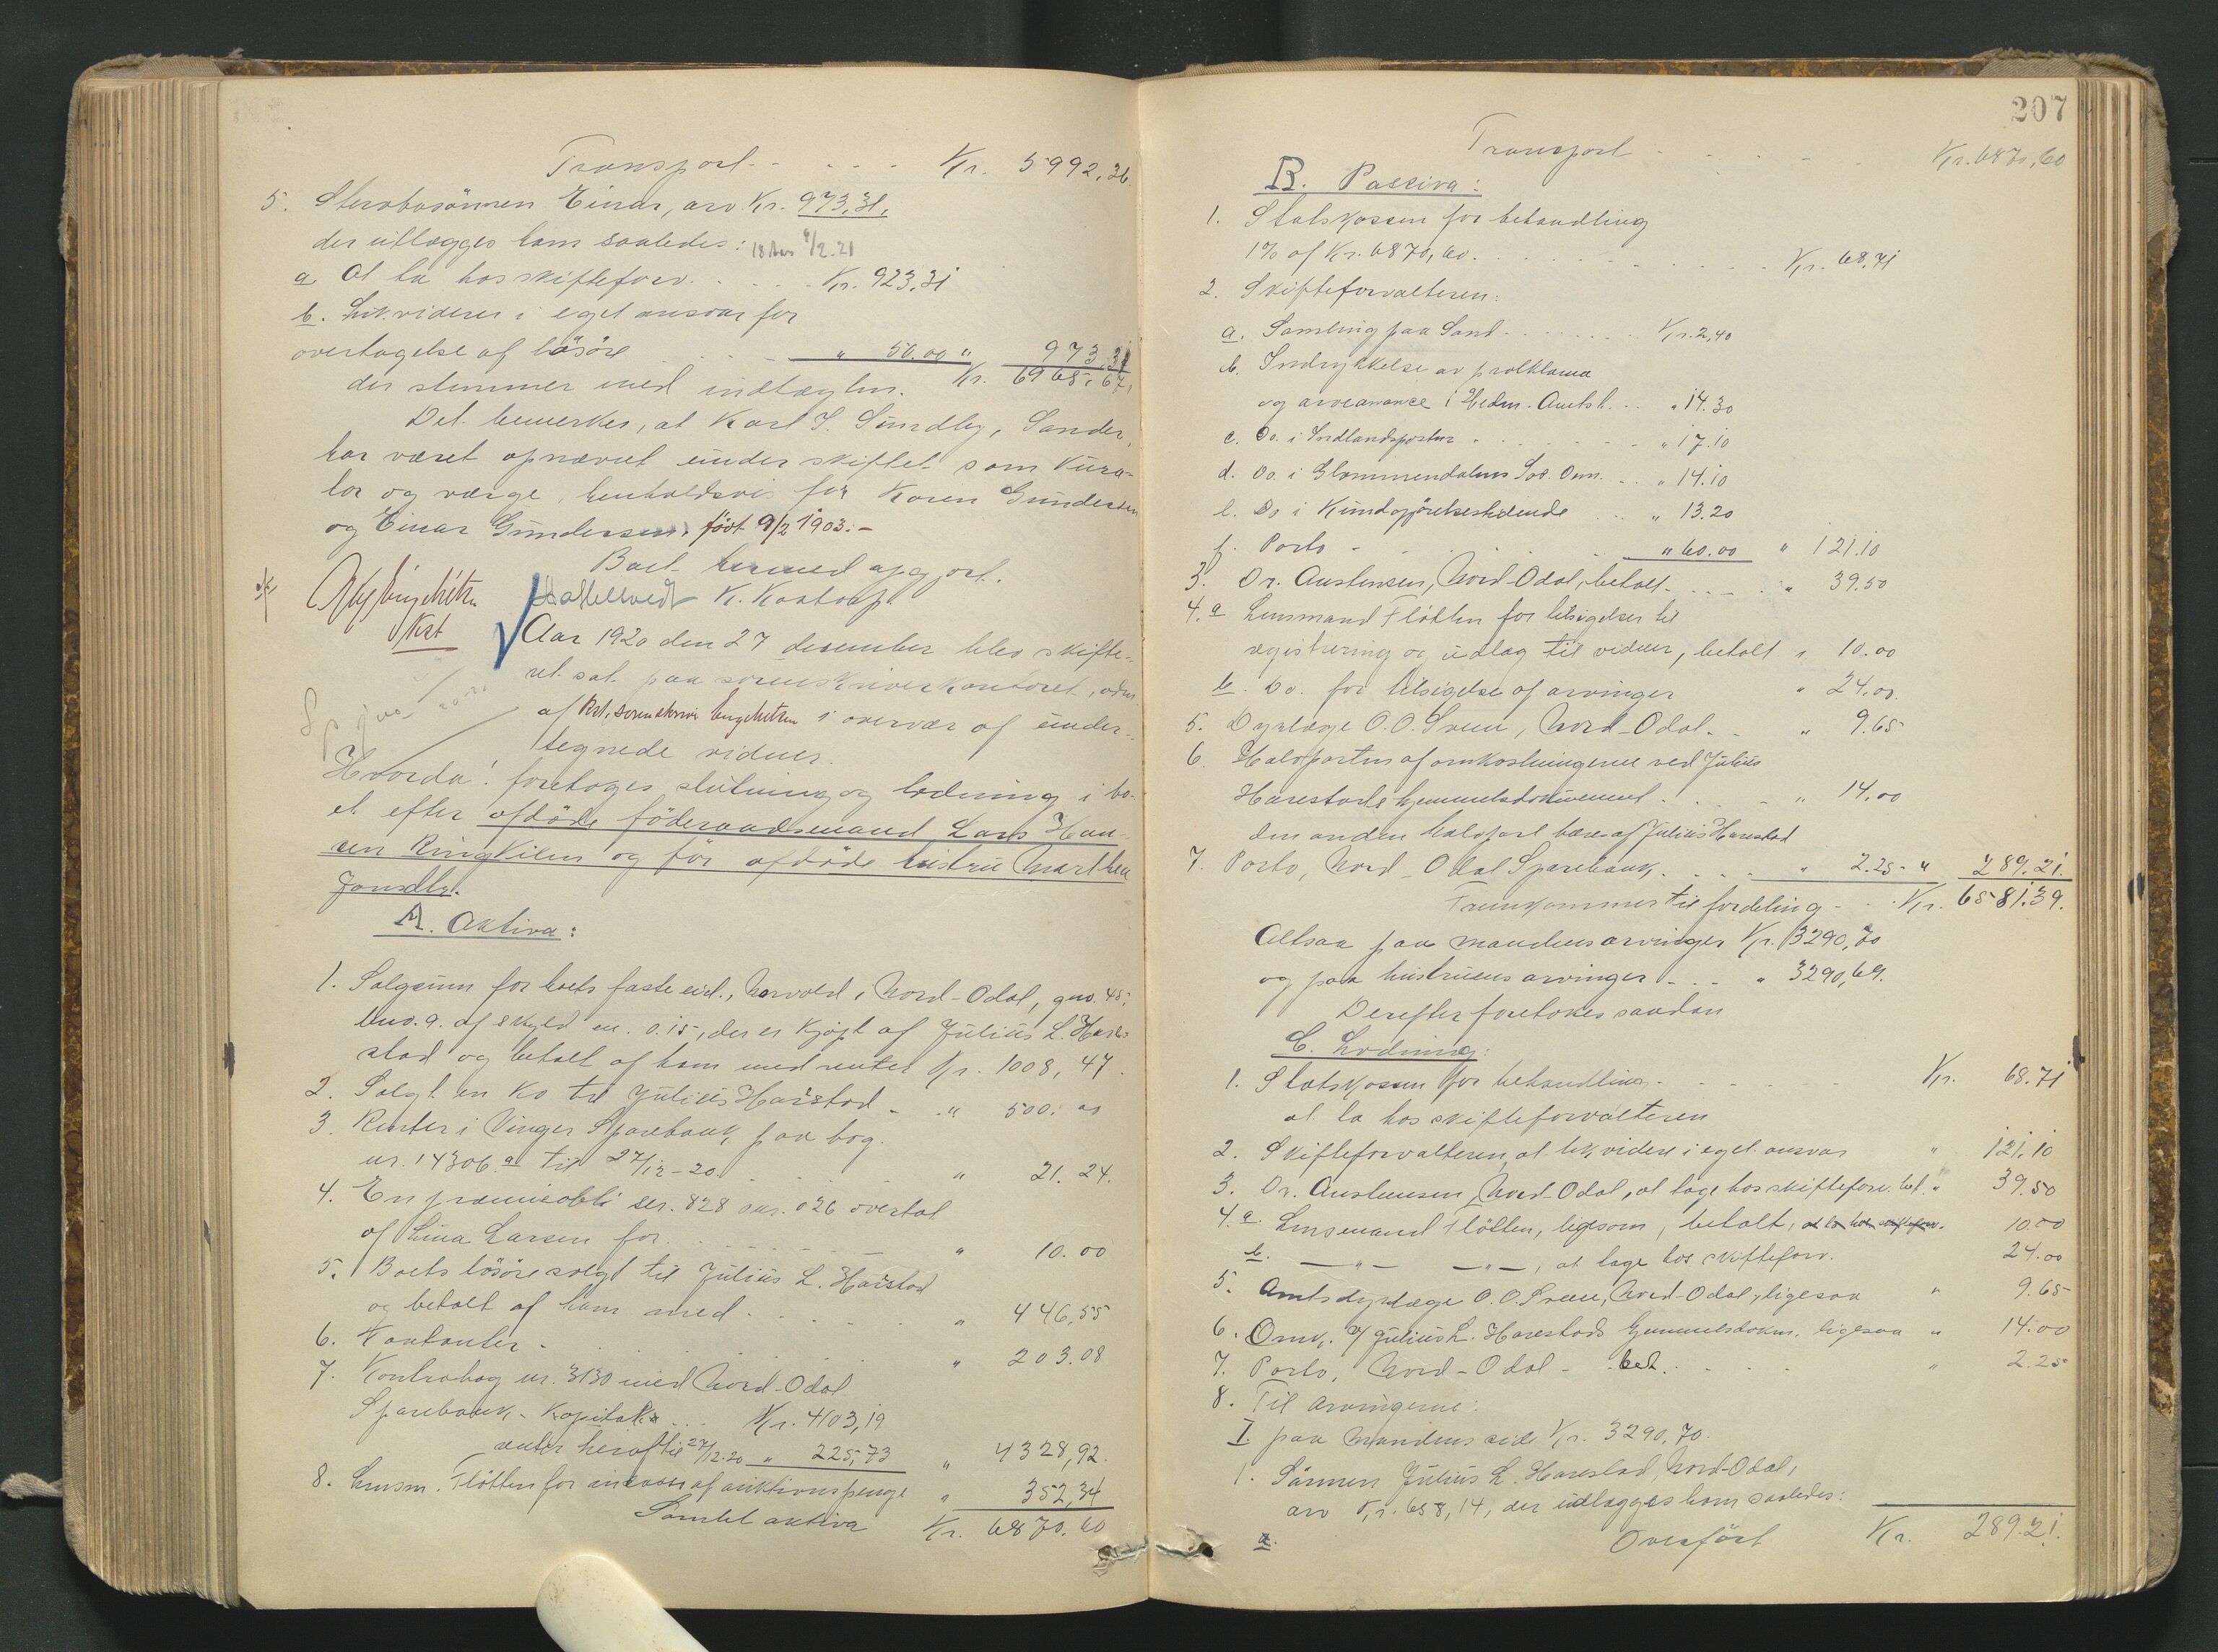 Transport - - - - Kr. 5992,36.
5. Stervbosönnen Einar, arv Kr. 973,31,
der utlægges ham saaledes: 18 aar 9/2.21
a. At ta hos skifteforv. . . . . Kr. 923,31
b. Likviderer i eget ansvar for
overtagelse af lösöre - - - " 50.00 " 973,31
der stemmer med indtægten. Kr. 6965,67.
Det bemerkes, at Karl J. Sundby, Sander,
har været opnævnt under skiftet som kura-
tor og værge, henholdsvis for Karen Gundersen
og Einar Gundersen, født 9/2 1903.-
Boet hermed opgjort.
K. Kaatorp.
Kst
Aar 1920 den 27 desember blev skifte-
ret sat paa sorenskriverkontoret, adm.
af kst. sorenskriver Engehetrn i overvær af under-
tegnede vidner.
Hvorda! foretoges slutning og lodning i bo-
et efter afdöde föderaadsmand Lars Han-
sen Ringkilen og för afdöde hustru Marthea
Jonsdtr.
A. Aktiva:
1. Salgssum for boets faste eied., Norvold i Nord-Odal, gno. 45,
bno. 9. af skyld m. 0.15, der er kjöpt af Julius L. Hare-
stad og betalt af ham med renter Kr. 1008,47.
2. Solgt en ko til Julius Harstad - . " 500.00
3. Renter i Vinger Sparebank paa bog.
nr. 14306.a til 27/12-20. . . . . . " 21.24.
4. En præmieobli ser. 828 nr. 026 overtat
af Lina Larsen for . . . . . " 10.00
5. Boets lösöre solgt til Julius L. Harstad
og betalt af ham med . . . . . " 446,55
6. Kontanter - . . . . . " 203.08
7. Kontrabog nr. 3130 med Nord-Odal
Sparebank - Kapital . . . Kr. 4103,19
renter heraf til 27/12.20 " 225,73 " 4328,92.
8. Lensm. Flötten for incasso af auktionspenge " 352,34
Samlet aktiva Kr. 6870.60
207
Transport - - - - - Kr. 6870,60
B. Passiva:
1. Statskassen for behandling
1% af Kr. 6870,60. . . . . . . Kr. 68.71
2. Skifteforvalteren:
a. Samling paa Sand . . . . . . Kr. 2,40
b. Indrykkelse av proklama
og arveanonce i Hedm. Amtst. . . " 14.30
c. Do. i Indlandsposten - . . . . - " 17.10
d. Do. i Glommendalens Soc. Dem. . . " 14.10
e. Do i Kundgjörelsestidende . . . " 13.20
f. Porto - . . . . " 60.00 " 121.10
3. Dr. Austensen, Nord-Odal, betalt. . . . . " 39.50
4. a Lensmand Flötten for tilsigelser til
registrering og udlag til vidner, betalt " 10.00
b. Do. for tilsigelse af arvinger " 24.00
5. Dyrlæge O. O. Sveen, Nord-Odal. - " 9.65
6. Halvparten af omkostningerne ved Julius
Harestads hjemmelsdokument . . . - " 14.00
den anden halvpart bæres af Julius Harestad
7. Porto, Nord-Odal Sparebank. . . . " 2.25 - " 289.21.
Fremkommer til fordeling - . Kr. 6581.39.
Altsaa paa mandens arvinger Kr. 3290,70
og paa hustruens arvinger - . . " 3290,69.
Derefter foretokes saadan
C. Lodning:
1. Statskassen for behandling - - - - Kr. 68.71
at ta hos skifteforvalteren
2. Skifteforvalteren, at likvidere i eget ansvar " 121.10
3. Dr. Austensen, Nord-Odal, at tage hos skifteforv. bet. " 39.50
4. a. Lensmand Flötten, ligesom, betalt, at ta hos skiftefor. 10.00
b. —"— —"—, at tage hos skifteforv. 24.00
5. Amtsdyrlæge O. O. Sveen, Nord-Odal, ligesaa " 9.65
6. Omk. v/ Julius L. Harestads hjemmelsdokm. ligesaa " 14.00
7. Porto, Nord-Odal - bet. . . . . " 2.25
8. Til arvingerne:
I paa mandens side Kr. 3290,70.
1. Sönnen Julius L. Harestad, Nord-Odal,
arv Kr. 658,14, der udlægges ham saaledes:
a. Overfört Kr. 289.21.